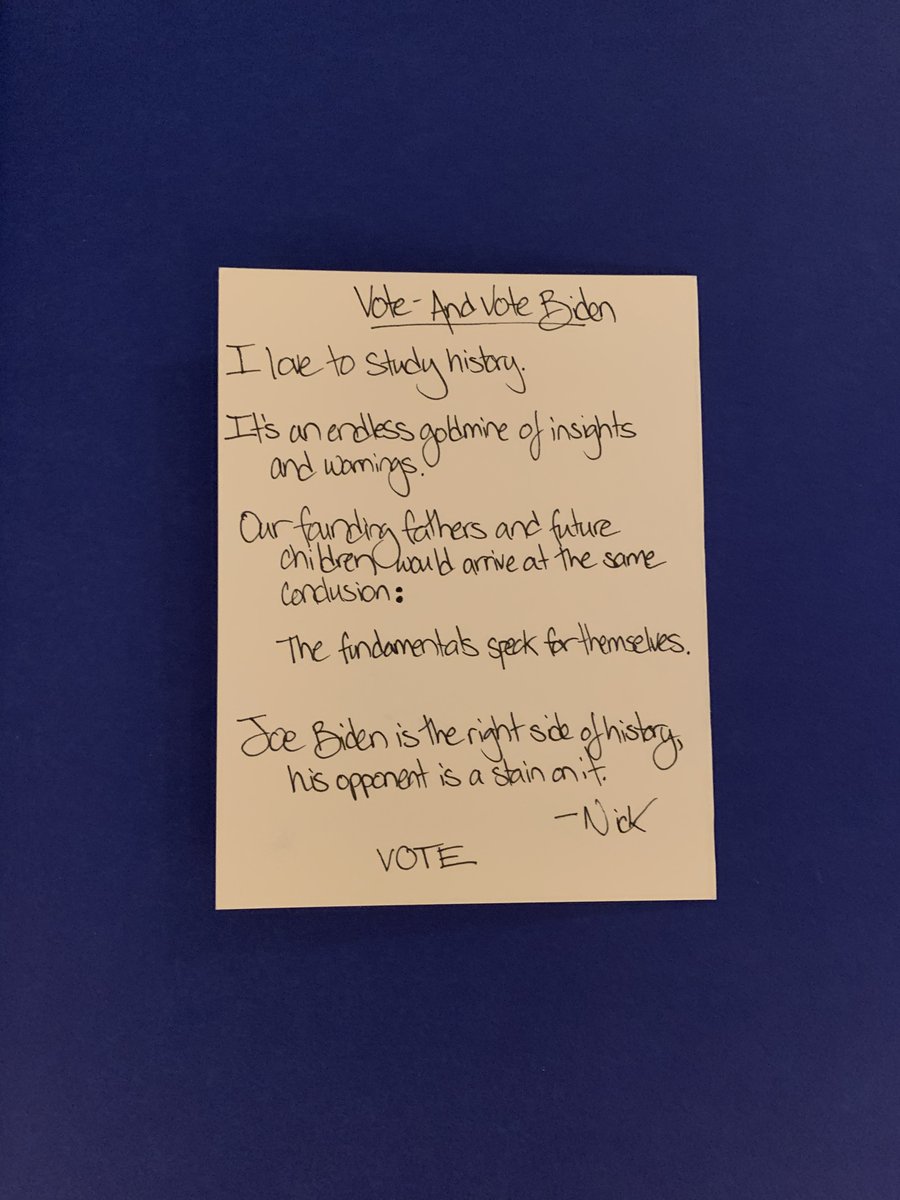 Vote - And Vote Biden
I love to study history.
It's an endless goldmine of insights
and warnings.
Our founding fathers and future
children would arrive at the same
conclusion:
The fundamentals speak for themselves.
Joe Biden is the right side of history,
his opponent is a stain on it.
- Nick
VOTE